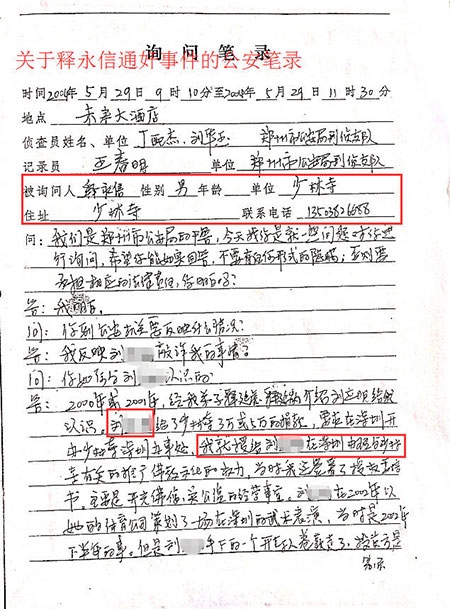 询 问 笔 录
关于释永信通奸事件的公安笔录
时间2004年5月29日9时10分至2004年5月29日11时30分
地点 未来大酒店
侦查员姓名、单位 丁 杰、刘 郑州市公安局刑侦支队
记录员 王春明 单位 郑州市公安局刑侦支队
被询问人 释永信 性别 男 年龄 单位 少林寺
住址 少林寺 联系电话
问：我们是郑州市公安局的干警，今天我们是就一些问题对你进
行询问，希望你能如实回答，不要有任何形式的隐瞒，否则要
承担相应的法律责任，你明白吗？
答：我明白。
问：你到公安机关要反映什么情况？
答：我反映刘 敲诈我的事情？
问：你如何与刘 认识的？
答：2000年或2001年，经我弟子 介绍刘 给我
认识。刘 给了少林寺3万或5万的捐款，要求在深圳开
办少林寺深圳办事处，我就授给刘 在深圳
委有关的推广佛教文化的权力，当时我还签署了授权委托
书，主要是开光佛像，卖 的经营事宜。刘 在2002年以
她的 公司策划了一场在深圳的武术表演，当时是2002年
下半年的事。但是刘 手下的一个 卷款走了，
第1页